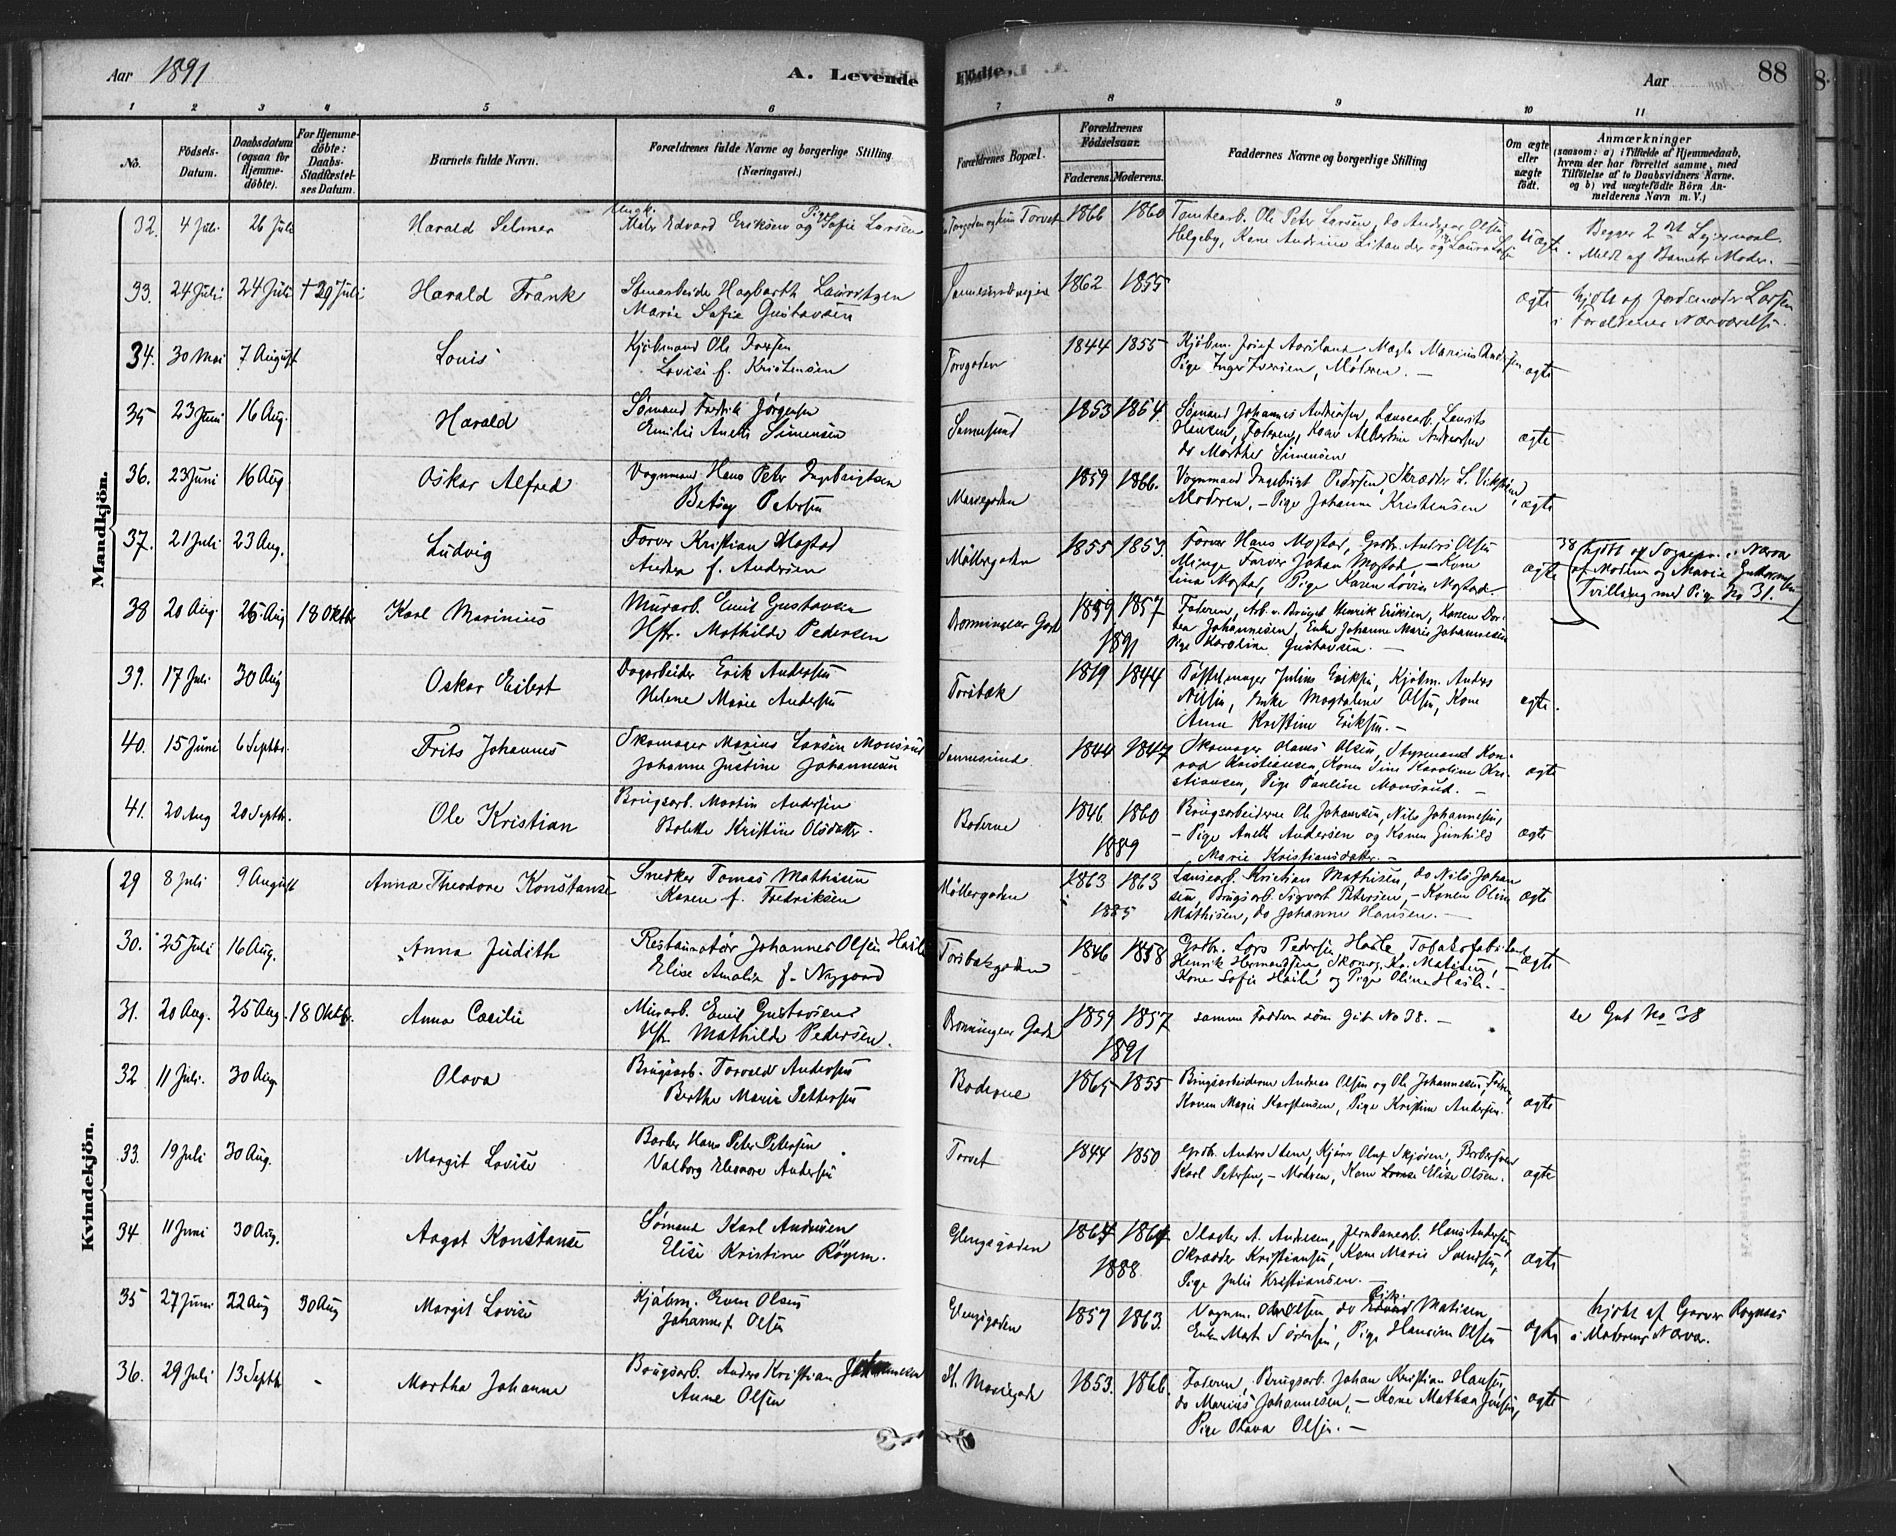 Aar 1891
A. Levende
Fødte.
Aar
88
1 2 3 4 5 6 7 8 9 10 11
No.
Födsels-Datum.
Daabsdatum (ogsaa for Hjemme-döbte).
For Hjemme-döbte: Daabs-Stadfæstel-ses Datum.
Barnets fulde Navn.
Forældrenes fulde Navne og borgerlige Stilling (Næringsvei.)
Forældrenes Bopæl.
Forældrenes Födselsaar.
Faderens. Moderens.
Faddernes Navne og borgerlige Stilling
Om ægte eller uægte födt.
Anmærkninger
(saasom: a) i Tilfælde af Hjemmedaab,
hvem der har forrettet samme, med
Tilföielse af to Daabsvidners Navne.
og b) ved uægtefödte Börn An-
melderens Navn m. V.)
Mandkjön.
32. 4 Juli 26 Juli Harald Selmer
Ungk. Maler Edvard Eriksen og Pige Sofie Larsen
Torvet 1866 1860
Tomtearb. Ole Peter Larsen, do Andreas Olsen
Helgeby, Kone Andrine
Uægte.
Begges 2det Leiermaal.
Meldt af Barnets Moder.
33. 24 Juli 24 Juli † 29 Juli Harald Frank
Stenarbeider Hagbarth Lauritzen
Marie Sofie Gustavsen
1862 1855
ægte
hjdbt af Jordemoder Larsen
i Foreldrenes Nærværelse.
34. 30 Mai 7 August Louis
Kjøbmand Ole Iversen
Lovise f. Kristensen
Torvgaden
1844 1855
Pige Inger Iversen, Modren. —
ægte
35 23 Juni 16 Aug. Harald
Sømand Fredrik Jørgensen
Emilie Anette Simensen
Sannesund
1853 1864.
Sømand Johannes Andersen, Laurits
Hansen, Faderen, Kone Albertine Andersen
do Marthe Simensen
ægte
36. 23 Juni 16 Aug Oskar Alfred
Vognmand Hans Peter Ingebrigtsen
Betsy Petersen
1859 1866.
Vognmand Ingebrigt Pedersen, Skrædder L. Vikstrøm
Modren, — Pige Johanne Kristensen
ægte
37. 21 Juli 23 Aug. Ludvig
Farver Kristian Mostad
Andrea f. Andersen
Møllergaden
1855 1853.
Farver Hans Mostad, Grdbr. Anders Olsen
Minge, Farver Johan Mostad — Kone
Lina Mostad, Pige Karen Lovise Mostad
ægte
38 20 Aug. 25 Aug 18 Oktbr Karl Marinius
Murarb. Emil Gustavsen
Hstr. Mathilde Pedersen
1859 1857
1891
Faderen, Arb. v. Bruget Henrik Eriksen, Konen Dor-
thea Johannesen, Enke Johanne Marie Johannesen
Pige Karoline Gustavsen. —
38 hjdbt af Sognepr. i Nærv.
af Modren og Marie
Tvilling med Pige No 31.
39. 17 Juli 30 Aug Oskar Eilert
Dagarbeider Erik Andersen
Helene Marie Andersen
Torsbæk
1819 1844
Julius Eriksen, Kjøbm. Anders
Nilsen, Enke Magdalene Olsen, Kone
Anne Kristine Eriksen. —
ægte.
40. 15 Juni 6 Septbr. Frits Johannes
Skomager Marius Larsen Monsrud
Johanne Justine Johannesen
Sannesund
1844 1847
Skomager Olaves Olsen, Styrmand Kon-
rad Kristiansen, Konen Sine Karoline Kri-
stiansen, Pige Pauline Monsrud. —
ægte
41. 20 Aug 20 Septbr. Ole Kristian
Brugsarb. Martin Andersen
Bolette Kristine Olsdatter.
Boderne
1846 1860
1889
Brugsarbeiderne Ole Johansen, Nils Johannesen,
— Pige Anette Andersen og Konen Gunhild
Marie Kristiansdatter. —
ægte
Kvindekjön.
29 8 Juli 9 August Anna Theodore Konstanse
Snedker Tomas Mathisen
Karen f. Fredriksen
Møllergaden
1863 1863
1885
Lausearb. Kristian Mathisen, do Nils Johan
sen, Brugsarb. Sigvart Petersen, — Konen Oline
Mathisen, do Johanne Hansen. —
ægte
30. 25 Juli 16 Aug. Anna Judith
Restauratør Johannes Olsen Hasle
Elise Amalie f. Nygaard
Torsbækgaden
1846 1858
Grdbr. Lars Pedersen Hasle, Tobaksfabrikant
Henrik Hermansen, Skomag. Kr. Matisen, —
Kone Sofie Hasle og Pige Oline Hasle. —
ægte
31. 20 Aug. 25 Aug. 18 Oktbr. Anna Cæcilie
Murarb. Emil Gustavsen
Hstr. Mathilde Pedersen.
1859 1857
1891
samme Faddere som Gut No 38. —
se Gut No 38
32 11 Juli. 30 Aug. Olava
Brugsarb. Torvald Andersen
Berthe Marie Pettersen
Boderne
1865 1855
Brugsarbeiderne Andreas Olsen og Ole Johannesen,
Konen Marie Karstensen, Pige Kristine Andersen.
ægte
33. 19 Juli 30 Aug. Margit Lovise
Barber Hans Peter Petersen
Valborg Eleonore Andersen
Torvet
1844 1850
Karl Petersen, — Modren, Kone Elise Olsen.
ægte
34 11 Juni 30 Aug. Aagot Konstanse
Sømand Karl Andersen
Elise Kristine Røyem.
Glengsgaden
1864 1864
1888
Slagter A. Andresen, Jernbanearb. Hans Andersen
Skrædder Kristiansen, Kone Marie Svendsen,
Pige Julie Kristiansen. —
ægte
35 27 Juni 22 Aug 30 Aug Margit Lovise
Kjøbm. Even Olsen
Johanne f. Olsen
Glengsgaden
1857 1863.
Enke Marte Sørensen, Pige Hansine Olsen
ægte
hjdbt af Garver Rognaas
i Moderens Nærv.
36. 29 Juli 13 Septbr. - Martha Johanne
Brugsarb. Anders Kristian Johannesen
Anne Olsen
St. Mariegade
1853. 1866.
Faderen, Brugsarb. Johan Kristian Hansen,
do Marius Johannesen, — Kone Mathea Jensen,
Pige Olava Olsen. —
ægte